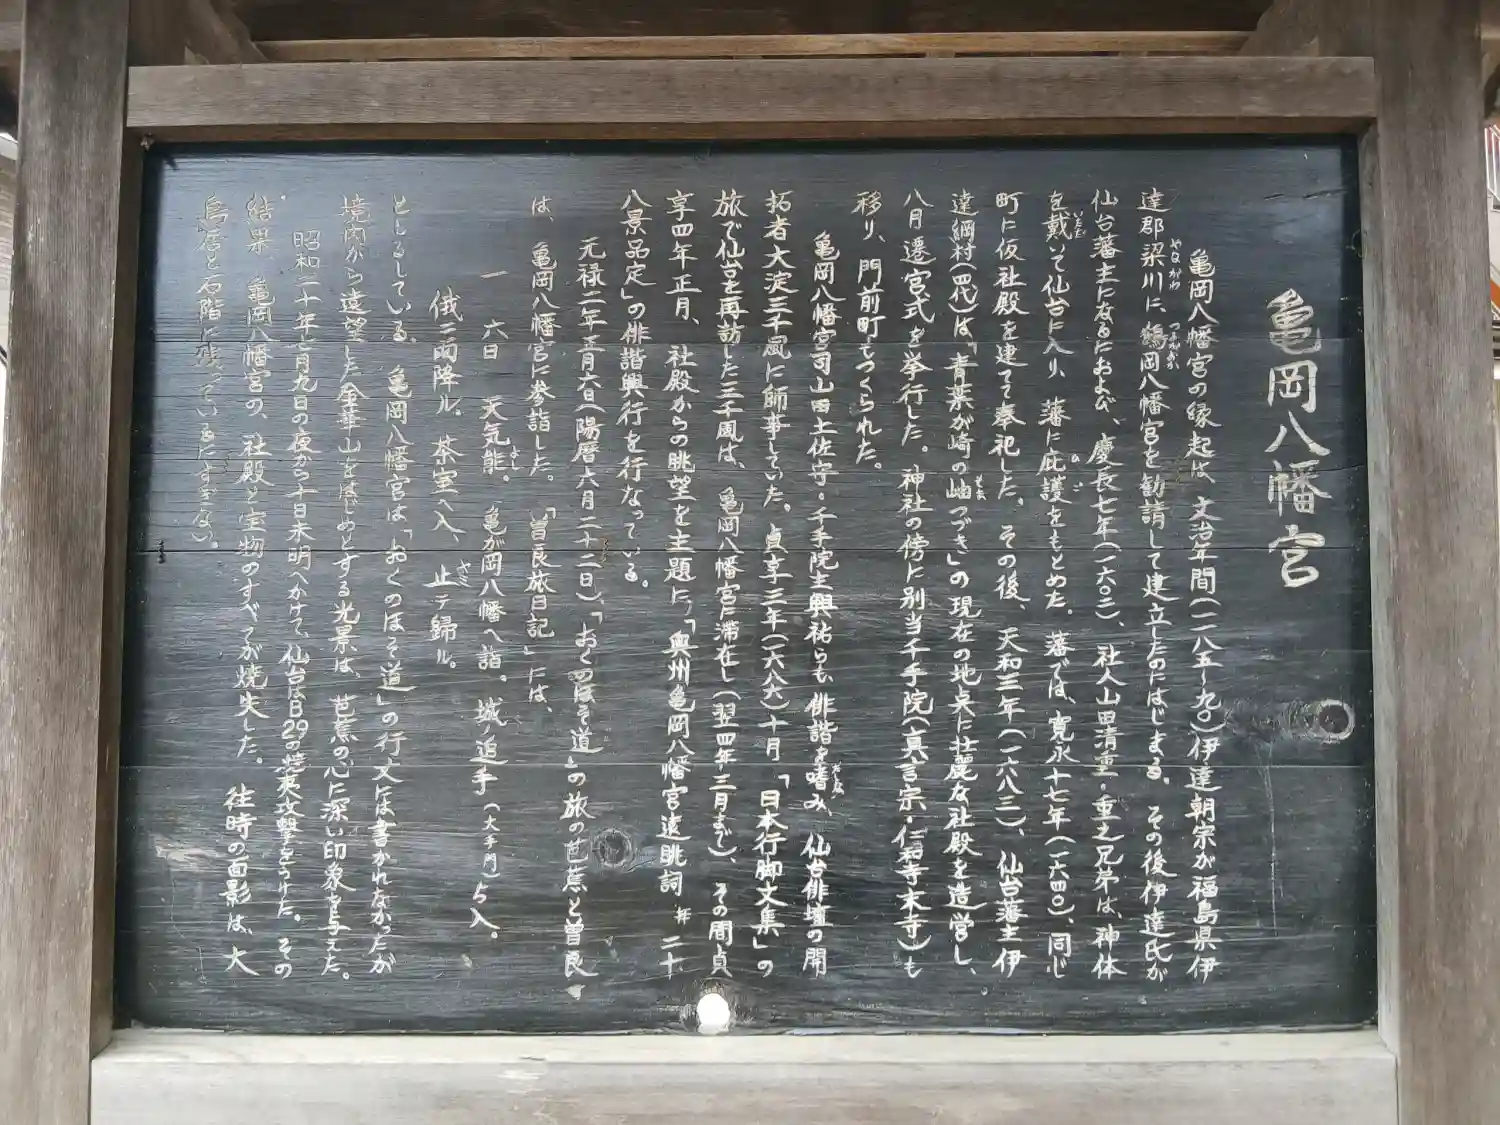 亀岡八幡宮
亀岡八幡宮の縁起は、文治年間(一一八五〜九〇)伊達朝宗が福島県伊
達郡梁川に、鶴岡八幡宮を勧請して建立したのにはじまる。その後伊達氏が
仙台藩主になるにおよび、慶長七年(一六〇二)、社人山田清重・重之兄弟は、神体
を戴いて仙台に入り、藩に庇護をもとめた。藩では、寛永十七年(一六四〇)、同心
町に仮社殿を建てて奉祀した。その後、天和三年(一六八三)、仙台藩主伊
達綱村(四代)は、「青葉が崎の岫つづき」の現在の地点に壮麗な社殿を造営し、
八月遷宮式を挙行した。神社の傍に別当千手院(真言宗・仁和寺末寺)も
移り、門前町もつくられた。
亀岡八幡宮司山田土佐守・千手院主興祐らも俳諧を嗜み、仙台俳壇の開
拓者大淀三千風に師事していた。貞享三年(一六八六)十月「日本行脚文集」の
旅で仙台を再訪した三千風は、亀岡八幡宮に滞在し(翌四年三月まで)、その間貞
享四年正月、社殿からの眺望を主題に、「奥州亀岡八幡宮遠眺詞 并 二十
八景品定」の俳諧興行を行なっている。
元禄二年五月六日(陽暦六月二十二日)、「おくのほそ道」の旅の芭蕉と曽良
は、亀岡八幡宮に参詣した。「曽良旅日記」には、
一 六日 天気能。亀が岡八幡へ詣。城ノ追手(大手門)ゟ入。
俄ニ雨降ル。茶室へ入、止テ歸ル。
としるしている。亀岡八幡宮は、「おくのほそ道」の行文には書かれなかったが
境内から遠望した金華山をはじめとする光景は、芭蕉の心に深い印象を与えた。
昭和二十年七月九日の夜から十日未明へかけて、仙台はB29の焼夷攻撃をうけた。その
結果、亀岡八幡宮の、社殿と宝物のすべてが焼失した。往時の面影は、大
鳥居と石階に残っているにすぎない。